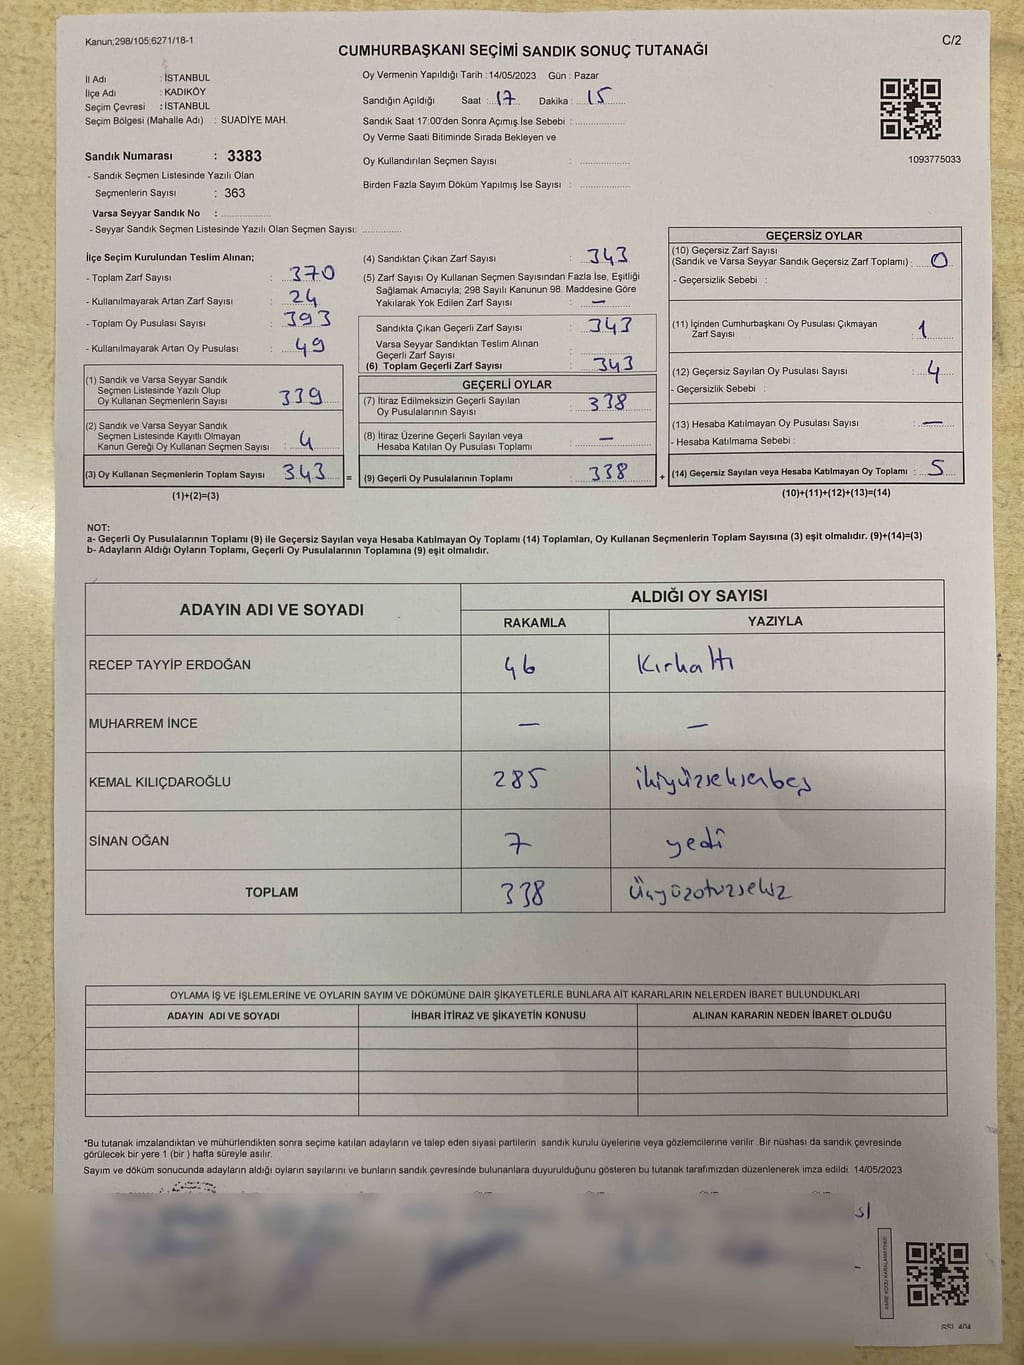 Kanun;298/105;6271/18-1
C/2
CUMHURBAŞKANI SEÇİMİ SANDIK SONUÇ TUTANAĞI
İl Adı : İSTANBUL
İlçe Adı : KADIKÖY
Seçim Çevresi : İSTANBUL
Seçim Bölgesi (Mahalle Adı) : SUADİYE MAH.
Oy Vermenin Yapıldığı Tarih : 14/05/2023 Gün : Pazar
Sandığın Açıldığı Saat : 17 Dakika : 15
Sandık Saat 17:00'den Sonra Açımış İse Sebebi :
Oy Verme Saati Bitiminde Sırada Bekleyen ve
Oy Kullandırılan Seçmen Sayısı :
Birden Fazla Sayım Döküm Yapılmış İse Sayısı :
1093775033
Sandık Numarası : 3383
- Sandık Seçmen Listesinde Yazılı Olan
Seçmenlerin Sayısı : 363
Varsa Seyyar Sandık No :
- Seyyar Sandık Seçmen Listesinde Yazılı Olan Seçmen Sayısı:
İlçe Seçim Kurulundan Teslim Alınan;
- Toplam Zarf Sayısı : 370
- Kullanılmayarak Artan Zarf Sayısı : 24
- Toplam Oy Pusulası Sayısı : 393
- Kullanılmayarak Artan Oy Pusulası : 49
(1) Sandık ve Varsa Seyyar Sandık
Seçmen Listesinde Yazılı Olup
Oy Kullanan Seçmenlerin Sayısı : 339
(2) Sandık ve Varsa Seyyar Sandık
Seçmen Listesinde Kayıtlı Olmayan
Kanun Gereği Oy Kullanan Seçmen Sayısı : 4
(3) Oy Kullanan Seçmenlerin Toplam Sayısı : 343
(1)+(2)=(3)
=
(4) Sandıktan Çıkan Zarf Sayısı : 343
(5) Zarf Sayısı Oy Kullanan Seçmen Sayısından Fazla İse, Eşitliği
Sağlamak Amacıyla; 298 Sayılı Kanunun 98. Maddesine Göre
Yakılarak Yok Edilen Zarf Sayısı : —
Sandıkta Çıkan Geçerli Zarf Sayısı : 343
Varsa Seyyar Sandıktan Teslim Alınan
Geçerli Zarf Sayısı :
(6) Toplam Geçerli Zarf Sayısı : 343
GEÇERLİ OYLAR
(7) İtiraz Edilmeksizin Geçerli Sayılan
Oy Pusulalarının Sayısı : 338
(8) İtiraz Üzerine Geçerli Sayılan veya
Hesaba Katılan Oy Pusulası Toplamı : —
(9) Geçerli Oy Pusulalarının Toplamı : 338
+
GEÇERSİZ OYLAR
(10) Geçersiz Zarf Sayısı
(Sandık ve Varsa Seyyar Sandık Geçersiz Zarf Toplamı) : 0
- Geçersizlik Sebebi :
(11) İçinden Cumhurbaşkanı Oy Pusulası Çıkmayan
Zarf Sayısı : 1
(12) Geçersiz Sayılan Oy Pusulası Sayısı : 4
- Geçersizlik Sebebi :
(13) Hesaba Katılmayan Oy Pusulası Sayısı : —
- Hesaba Katılmama Sebebi :
(14) Geçersiz Sayılan veya Hesaba Katılmayan Oy Toplamı : 5
(10)+(11)+(12)+(13)=(14)
NOT:
a- Geçerli Oy Pusulalarının Toplamı (9) ile Geçersiz Sayılan veya Hesaba Katılmayan Oy Toplamı (14) Toplamları, Oy Kullanan Seçmenlerin Toplam Sayısına (3) eşit olmalıdır. (9)+(14)=(3)
b- Adayların Aldığı Oyların Toplamı, Geçerli Oy Pusulalarının Toplamına (9) eşit olmalıdır.
ADAYIN ADI VE SOYADI
ALDIĞI OY SAYISI
RAKAMLA YAZIYLA
RECEP TAYYİP ERDOĞAN 46 Kırkaltı
MUHARREM İNCE — —
KEMAL KILIÇDAROĞLU 285 ikiyüzseksenbeş
SİNAN OĞAN 7 yedi
TOPLAM 338 Üçyüzotuzsekiz
OYLAMA İŞ VE İŞLEMLERİNE VE OYLARIN SAYIM VE DÖKÜMÜNE DAİR ŞİKAYETLERLE BUNLARA AİT KARARLARIN NELERDEN İBARET BULUNDUKLARI
ADAYIN ADI VE SOYADI İHBAR İTİRAZ VE ŞİKAYETİN KONUSU ALINAN KARARIN NEDEN İBARET OLDUĞU
*Bu tutanak imzalandıktan ve mühürlendikten sonra seçime katılan adayların ve talep eden siyasi partilerin sandık kurulu üyelerine veya gözlemcilerine verilir .Bir nüshası da sandık çevresinde
görülecek bir yere 1 (bir ) hafta süreyle asılır.
Sayım ve döküm sonucunda adayların aldığı oyların sayılarını ve bunların sandık çevresinde bulunanlara duyurulduğunu gösteren bu tutanak tarafımızdan düzenlenerek imza edildi. 14/05/2023